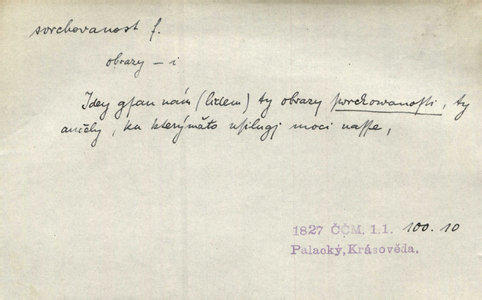 svrchovanost f.
obrazy – i
Idey gsau nám (lidem) ty obrazy swrchowanosti, ty
aučely, ku kterýmžto usilugj moci nasse,
1827 ČČM. I.1. 100.10
Palacký, Krásověda.